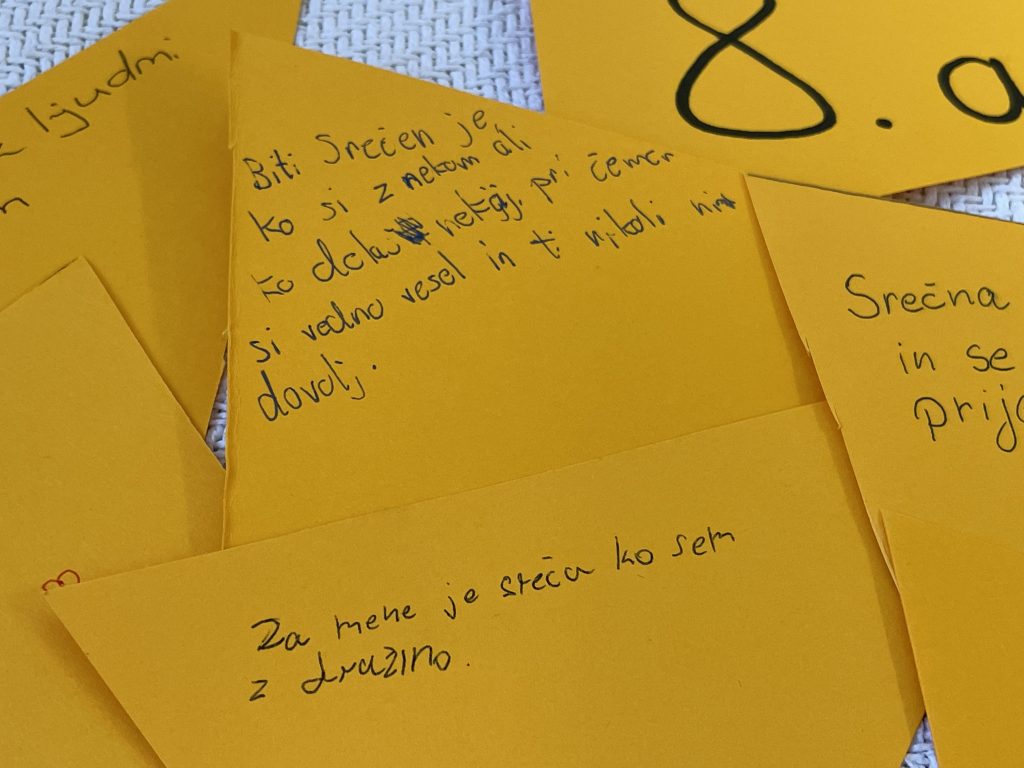 ljudmi
8. a
Biti srečen je
ko si z nekom ali
ko delaš nekaj, pri čemer
si vedno vesel in ti nikoli ni
dovolj.
Srečna
in se
Za mene je sreča ko sem
z družino.